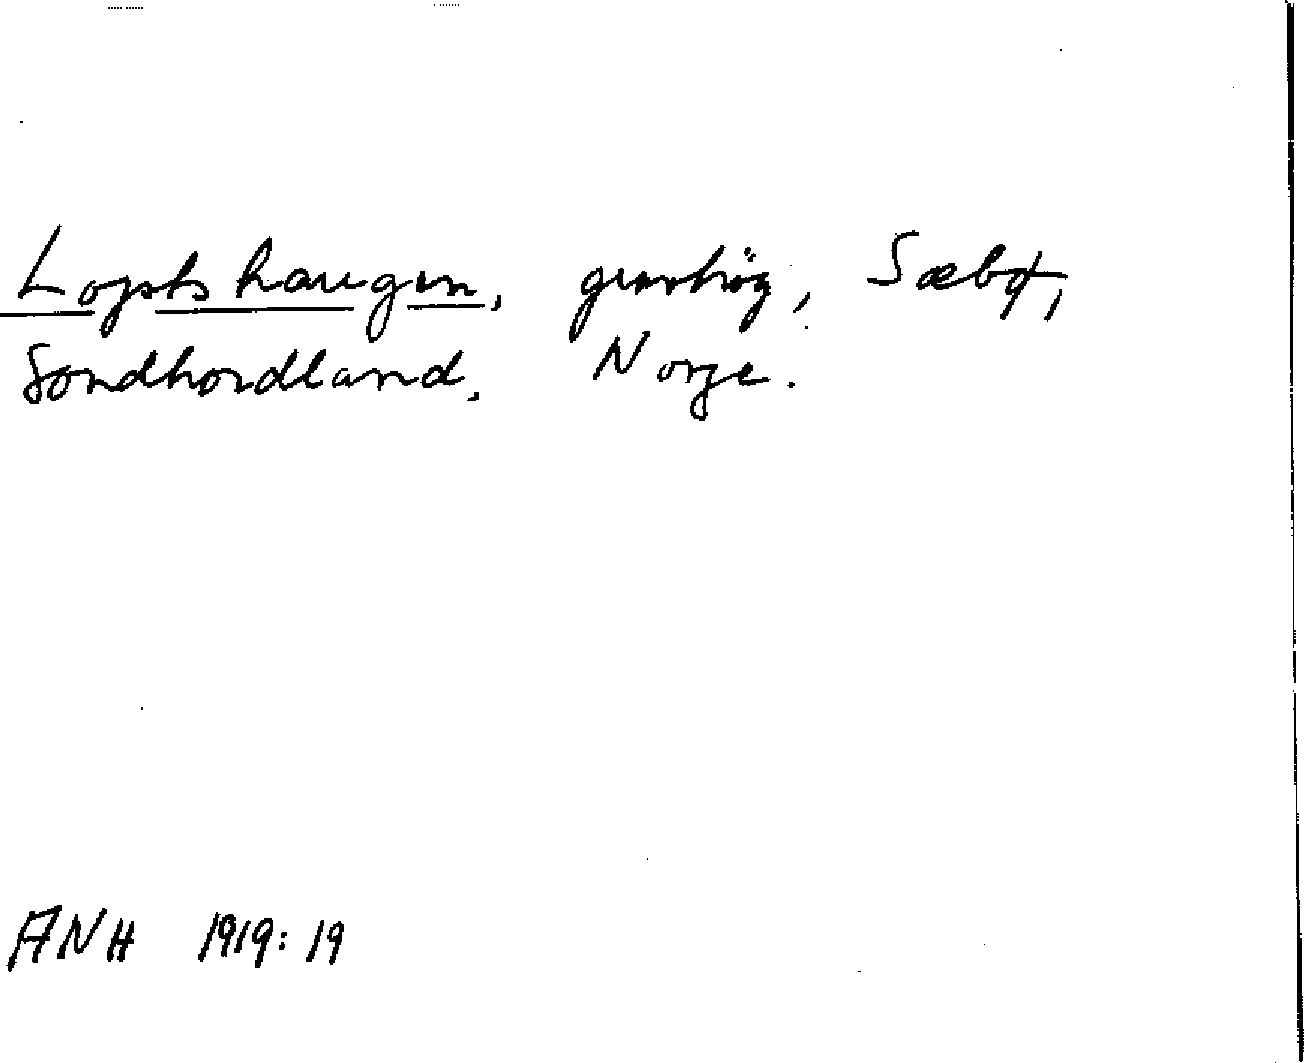 Loptshaugen, gravhög, Sæbø,
Söndhordland, Norge.
ANH 1919: 19